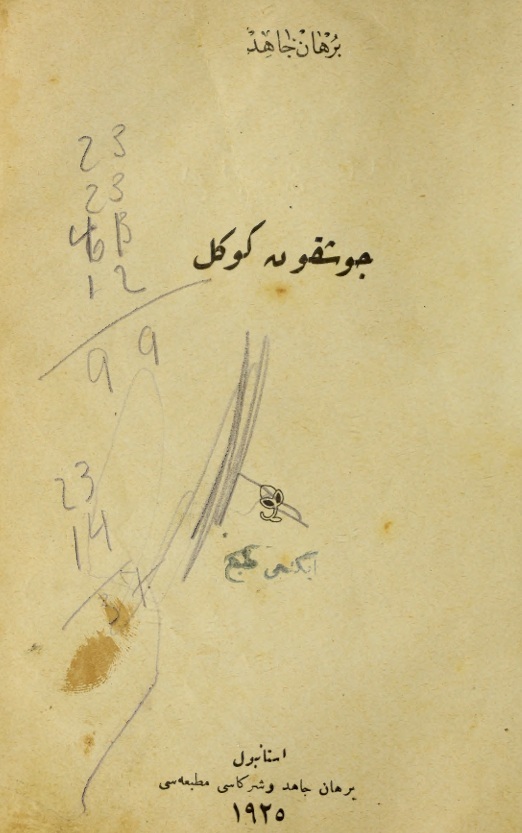 برهان جاهد
23
23
46
12
جوشقون كوكل
99
23
14
ایكنجی طبع
استانبول
برهان جاهد وشركاسی مطبعه‌سی
١٩٢٥